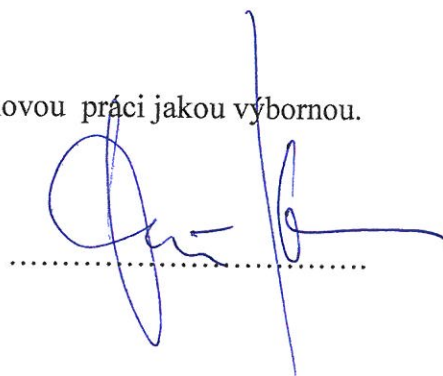 ovou práci jakou výbornou.